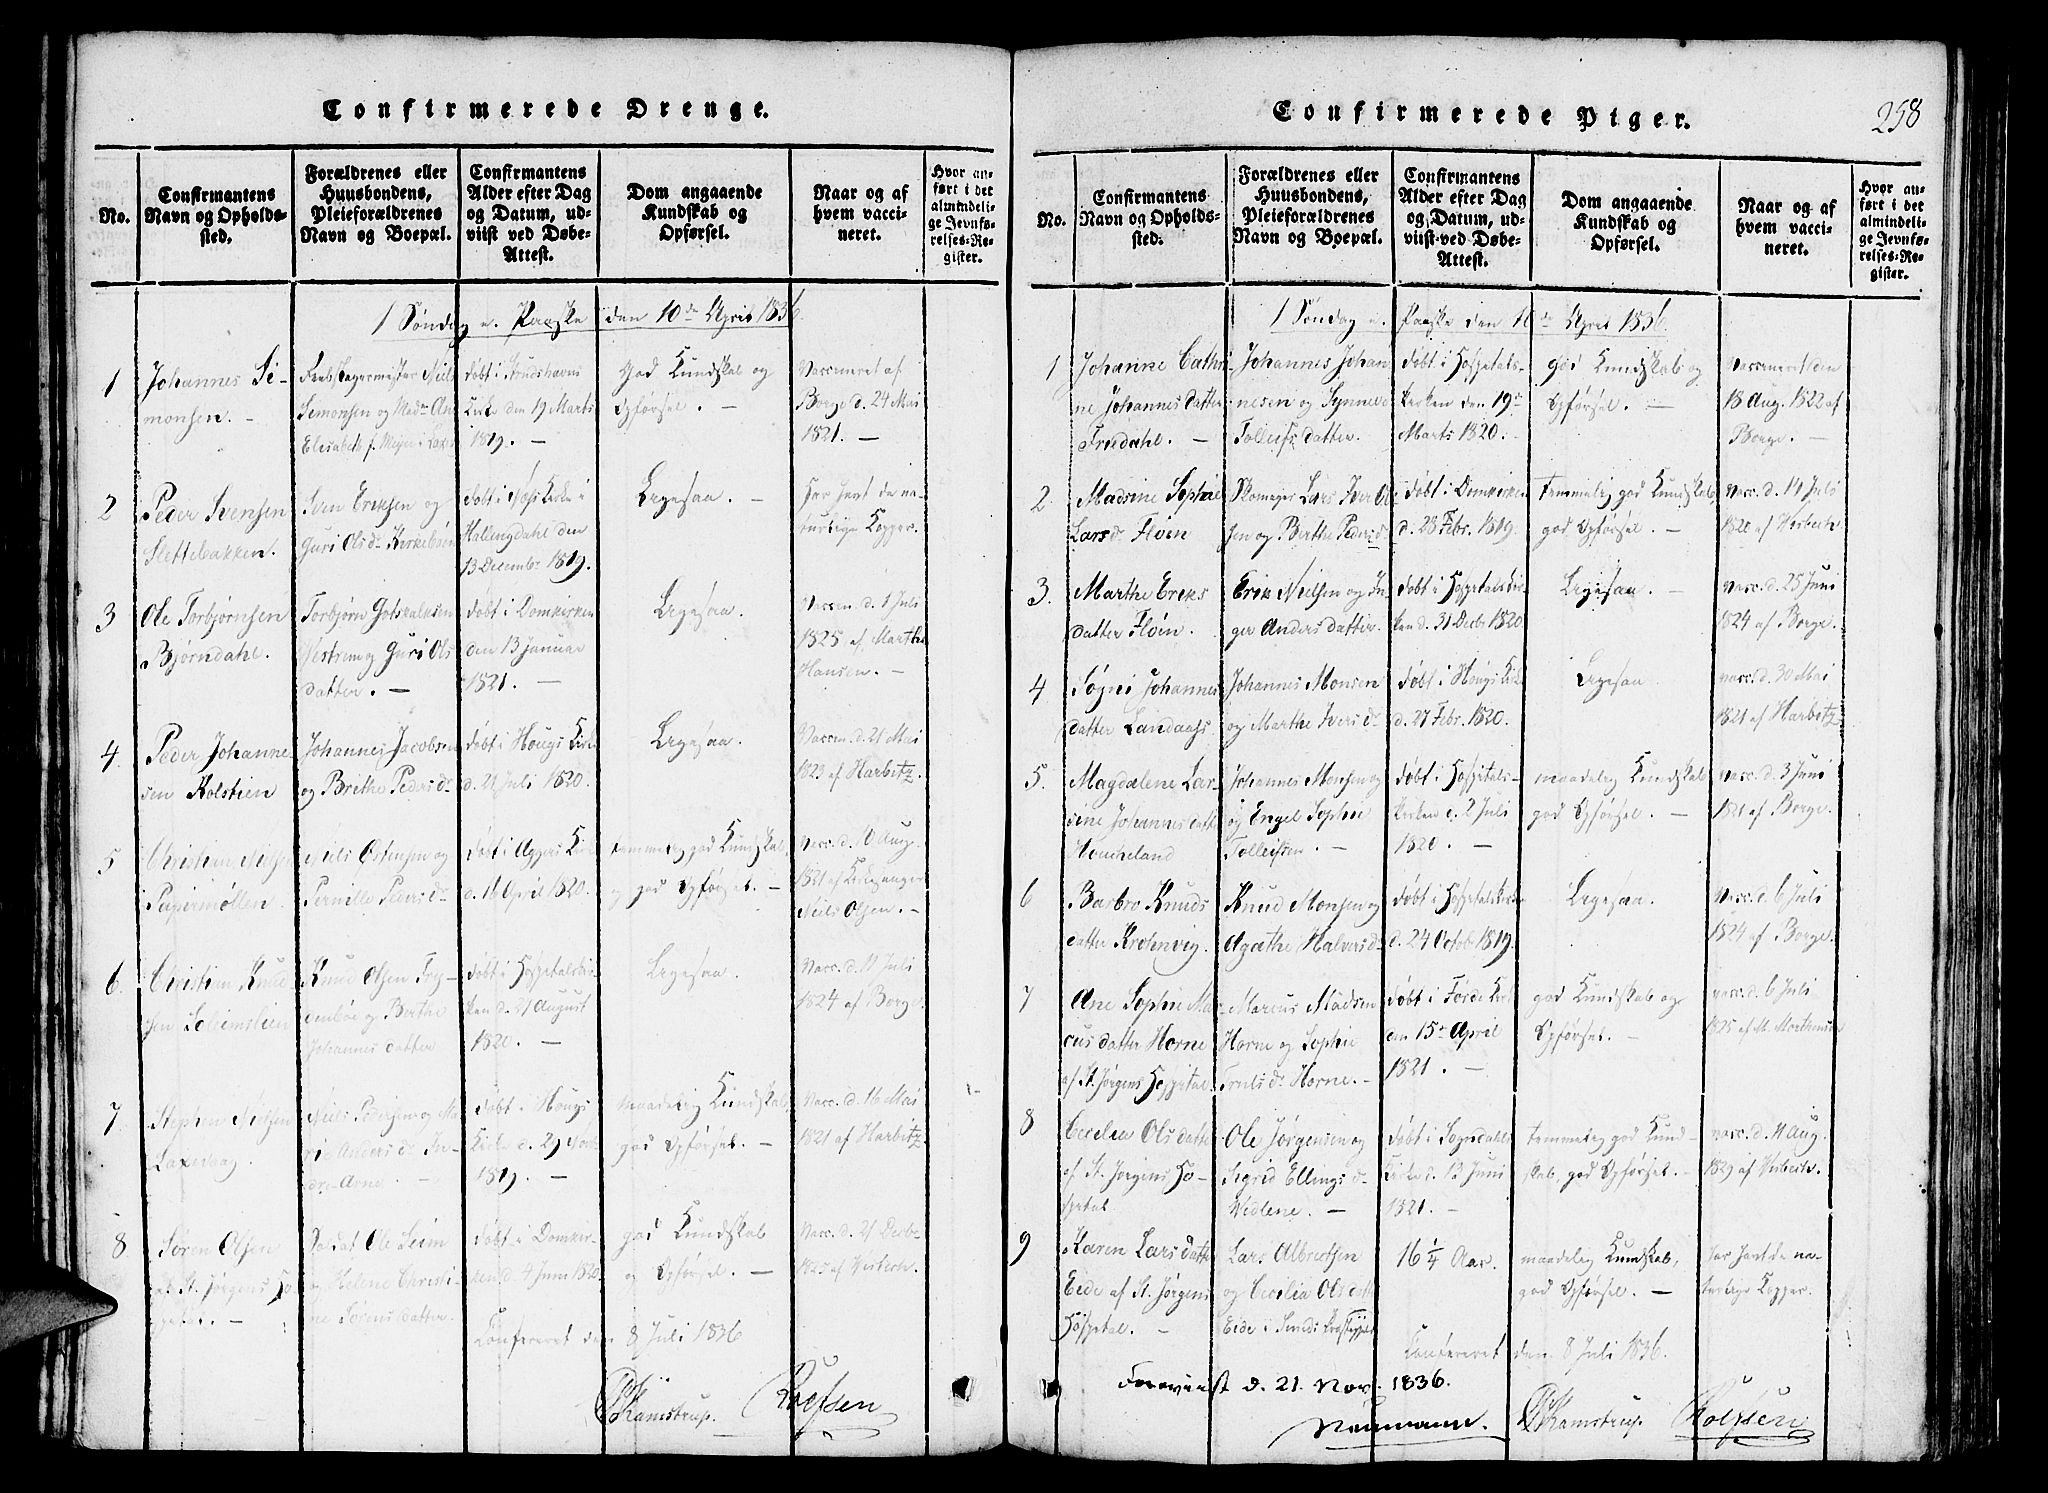 Confirmerede Drenge.
No.
Confirmantens Navn og Opholds-sted.
Forældrenes eller Huusbondens, Pleieforældrenes Navn og Boepæl.
Confirmantens Alder efter Dag og Datum, ud-viist ved Døbe-Attest.
Dom angaaende Kundskab og Opførsel.
Naar og af hvem vacci-neret.
Hvor an-ført i det almindeli-ge Jevnfø-relses-Re-gister.
1 Søndag e. Paaske den 10de April 1836.
1
Johannes Si-
monsen. -
Niels
Simonsen og Madm An
Elisabeth f. Meyer i
døbt i
Kirke den 19 Marts
1819. -
God Kundskab og
Opførsel. -
Vaccineret af
Borge d. 24 Mai
1821. -
2
Peder Svensen
Slettebakken.
Sven Eriksen og
Guri Olsdr Kirkebøen
døbt i Næs Kirke i
Hallingdahl den
13 Decembr 1819.
Ligesaa. -
Har havt de na-
turlige Kopper.
3
Ole Torbjørnsen
Bjørndahl.
Torbjørn Gotskalksen
Vestrem og Guri Ols
datter. -
døbt i Domkirken
den 13 Januar
1821. -
Ligesaa.
Vaccin. d. 1 Juli
1825 af Marthe
Hansen. -
4
Peder Johanne
sen Kolstien
Johannes Jacobsen
og Brithe Pedersdr
døbt i Hougs Kirke
d. 21 Juli 1820.
Ligesaa.
Vaccin. d. 21 Mai
1823 af Harbitz.
5
Christian Nielsen
Papirmøllen.
Niels Østensen og
Pernille Pedersdr
døbt i Aggers Kirke
d. 16 April 1820.
temmelig god Kundskab,
og god Opførsel. -
Vacc. d. 10 Aug.
1821 af Kirkesanger
Niels Olsen. -
6.
Christian Knud
sen Solemslien
Knud Olsen
og Berthe
Johannesdatter
døbt i Hospitalskir-
ken d. 21 August
1820. -
Ligesaa.
Vacc. d. 11 Juli
1824 af Borge.
7.
Stephen Nielsen
Laxevaag.
Niels Pedersen og Ma
rie Andersdr
Arne. -
døbt i Hougs
Kirke d. 29
1819. -
maadelig Kundskab,
god Opførsel. -
Vacc. d. 16 Mai
1821 af Harbitz
8.
Søren Olsen
af St. Jørgens Ho
spital. -
Soldat Ole Seim
og Helene Christi
ne Sørensdatter.
døbt i Domkir-
ken d. 4 Juni 1820.
god Kundskab
og Opførsel. -
Vacc. d. 21 Decbr
1825 af
Confereret den 8 Juli 1836
Kamstrup. Rolfsen
Confirmerede Piger.
258
No.
Confirmantens Navn og Opholds-sted.
Forældrenes eller Huusbondens, Pleieforældrenes Navn og Boepæl.
Confirmantens Alder efter Dag og Datum, ud-viist ved Døbe-Attest.
Dom angaaende Kundskab og Opførsel.
Naar og af hvem vacci-neret.
Hvor an-ført i det almindeli-ge Jevnfø-relses-Re-gister.
1 Søndag e. Paaske den 10de April 1836.
1
Johanne Cathri
ne Johannesdatter
Fredahl. -
Johannes Johan
nesen og Synneve
Tolleifsdatter.
døbt i Hospitals-
kirken den 19de
Marts 1820.
god Kundskab og
Opførsel. -
Vaccineret den
18 Aug. 1822 af
Borge. -
2.
Madsine Sophie
Larsdr Fløen
Skomager Lars Iver Ol
sen og Berthe Pedersdr
døbt i Domkirken
d. 28 Febr. 1819.
temmelig god Kundskab,
god Opførsel. -
Vacc. d. 14 Juli
1820 af
3.
Marthe Eriks
datter Fløen.
Erik Nielsen og In
ger Andersdatter.
døbt i Hospitalskir-
ken d. 31 Decbr 1820
Ligesaa. -
Vacc. d. 25 Juni
1824 af Borge.
4
Søgni Johannes
datter Landaas
Johannes Monsen
og Marthe Iversdr
døbt i Hougs Kirke
d. 27 Febr. 1820.
Ligesaa.
Vacc. d. 30 Mai
1821 af Harbitz
5.
Magdalene Lar-
sine Johannesdatter
Houkeland
Johannes Monsen og
og Engel Sophie
Tolleifsen. -
døbt i Hospitals-
kirken d. 2 Juli
1820. -
maadelig Kundskab
god Opførsel. -
Vacc. d. 3 Juni
1821 af Borge.
6
Barbro Knuds
datter Krohnvig.
Knud Monsen og
Agathe Halversdr
døbt i Hospitalskirken
d. 24 Octobr 1819.
Ligesaa.
Vacc. d. 6 Juli
1824 af Borge.
7
Ane Sophie Mar-
cusdatter Horne
af St. Jørgens Hospital.
Marcus Madsen
Horne og Sophie
Trulsdr Horne. -
døbt i Førde Kirke
den 15de April
1821. -
god Kundskab og
Opførsel. -
Vacc. d. 6 Juli
1825 af M. Mortensen
8
Cecilia Olsdatter
af St. Jørgens Ho-
spital
Ole Jørgensen og
Sigrid Ellingsdr
Vidlene. -
døbt i Sogndals
Kirke d. 13 Juni
1821. -
temmelig god Kund-
skab, god Opførsel. -
Vacc. d. 11 Aug.
1829 af
9
Karen Larsdatter
Eide af St. Jørgens
Hospital. -
Lars Albrectsen
og Cecilia Olsdatter
Eide i
16 1/4 Aar.
maadelig Kundskab,
god Opførsel. -
Har havt de na-
turlige Kopper.
Confereret den 8 Juli 1836.
Foreviist d. 21. Nov. 1836.
Neumann. Kamstrup Rolfsen